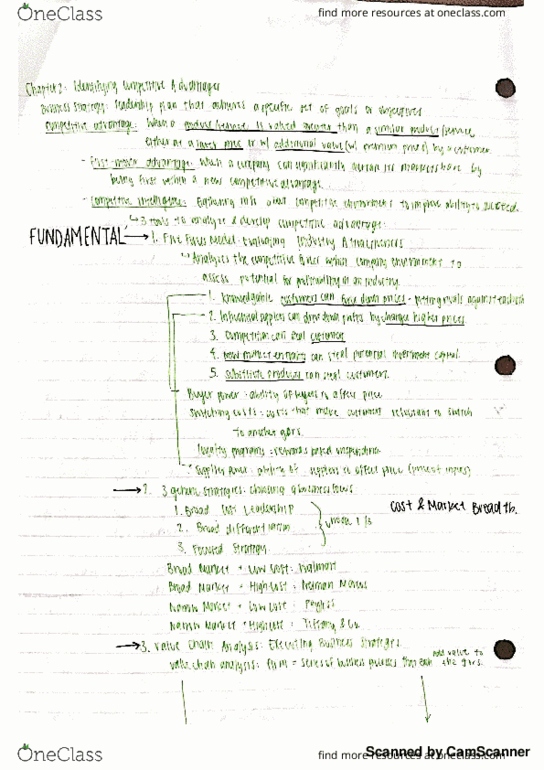 OneClass
find more resources at oneclass.com
Chapter 2: Identifying Competitive Advantages
Business strategy: leadership plan that achieves a specific set of goals or objectives
competitive advantage: when a product/service is valued greater than a similar product/service
either at a lower price or w/ additional value (w/ premium price) by a customer.
- First-mover advantage: when a company can significantly its market share by
being first within a new competitive advantage.
- Competitive intelligence: about competitive environment to improve ability to succeed.
3 tools to analyze & develop competitive advantage:
FUNDAMENTAL → 1. Five Forces Model: evaluating industry Attractiveness
Analyzes the competitive forces within company environment to
assess potential for profitability in an industry.
1. Knowledgable customers can force down prices - pitting rivals against each other
2. Influential suppliers can drive down profits by charging higher prices
3. Competition can steal customer
4. new market entrants can steal potential investment capital.
5. substitute products can steal customers.
Buyer power: ability of buyers to affect price
Switching costs: costs that make customers reluctant to switch
to another
loyalty programs: rewards based on spending
Supplier power: ability of suppliers to affect price
→ 2. 3 generic strategies: choosing a business focus
1. Broad Cost Leadership
2. Broad differentiation
3. Focused Strategy
Cost & Market Breadth.
Broad Market + Low Cost: Walmart
Broad Market + High Cost: Neiman Marcus
Narrow Market + Low Cost: Payless
Narrow Market + High Cost: Tiffany & Co.
→ 3. Value Chain Analysis: Executing Business Strategies
value chain analysis: firm = series of business processes that each add value to the
OneClass
find more resources at oneclass.com
Scanned by CamScanner